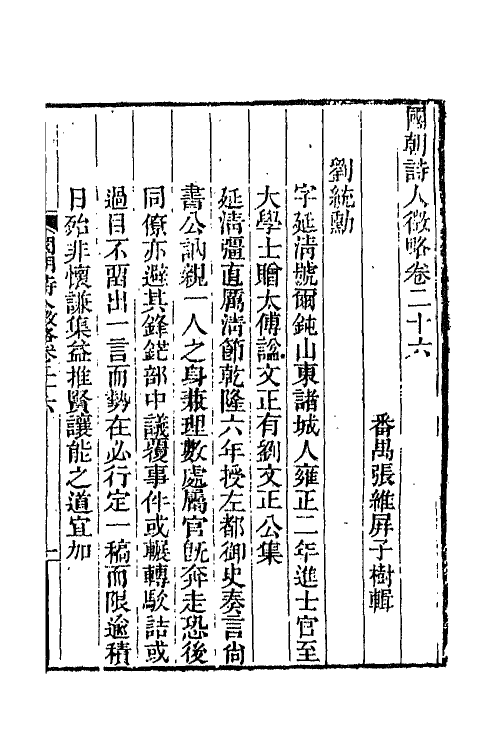 國朝詩人徵略卷二十六
番禺張維屏子樹輯
劉統勳
字延清號爾鈍山東諸城人雍正二年進士官至
大學士贈太傅諡文正有劉文正公集
延清彊直厲清節乾隆六年授左都御史奏言尙
書公訥親一人之身兼理數處屬官旣奔走恐後
同僚亦避其鋒鋩部中議覆事件或輾轉駮詰或
過目不留出一言而勢在必行定一稿而限逾積
日殆非懷謙集益推賢讓能之道宜加
國朝詩人徵略卷二十六
一